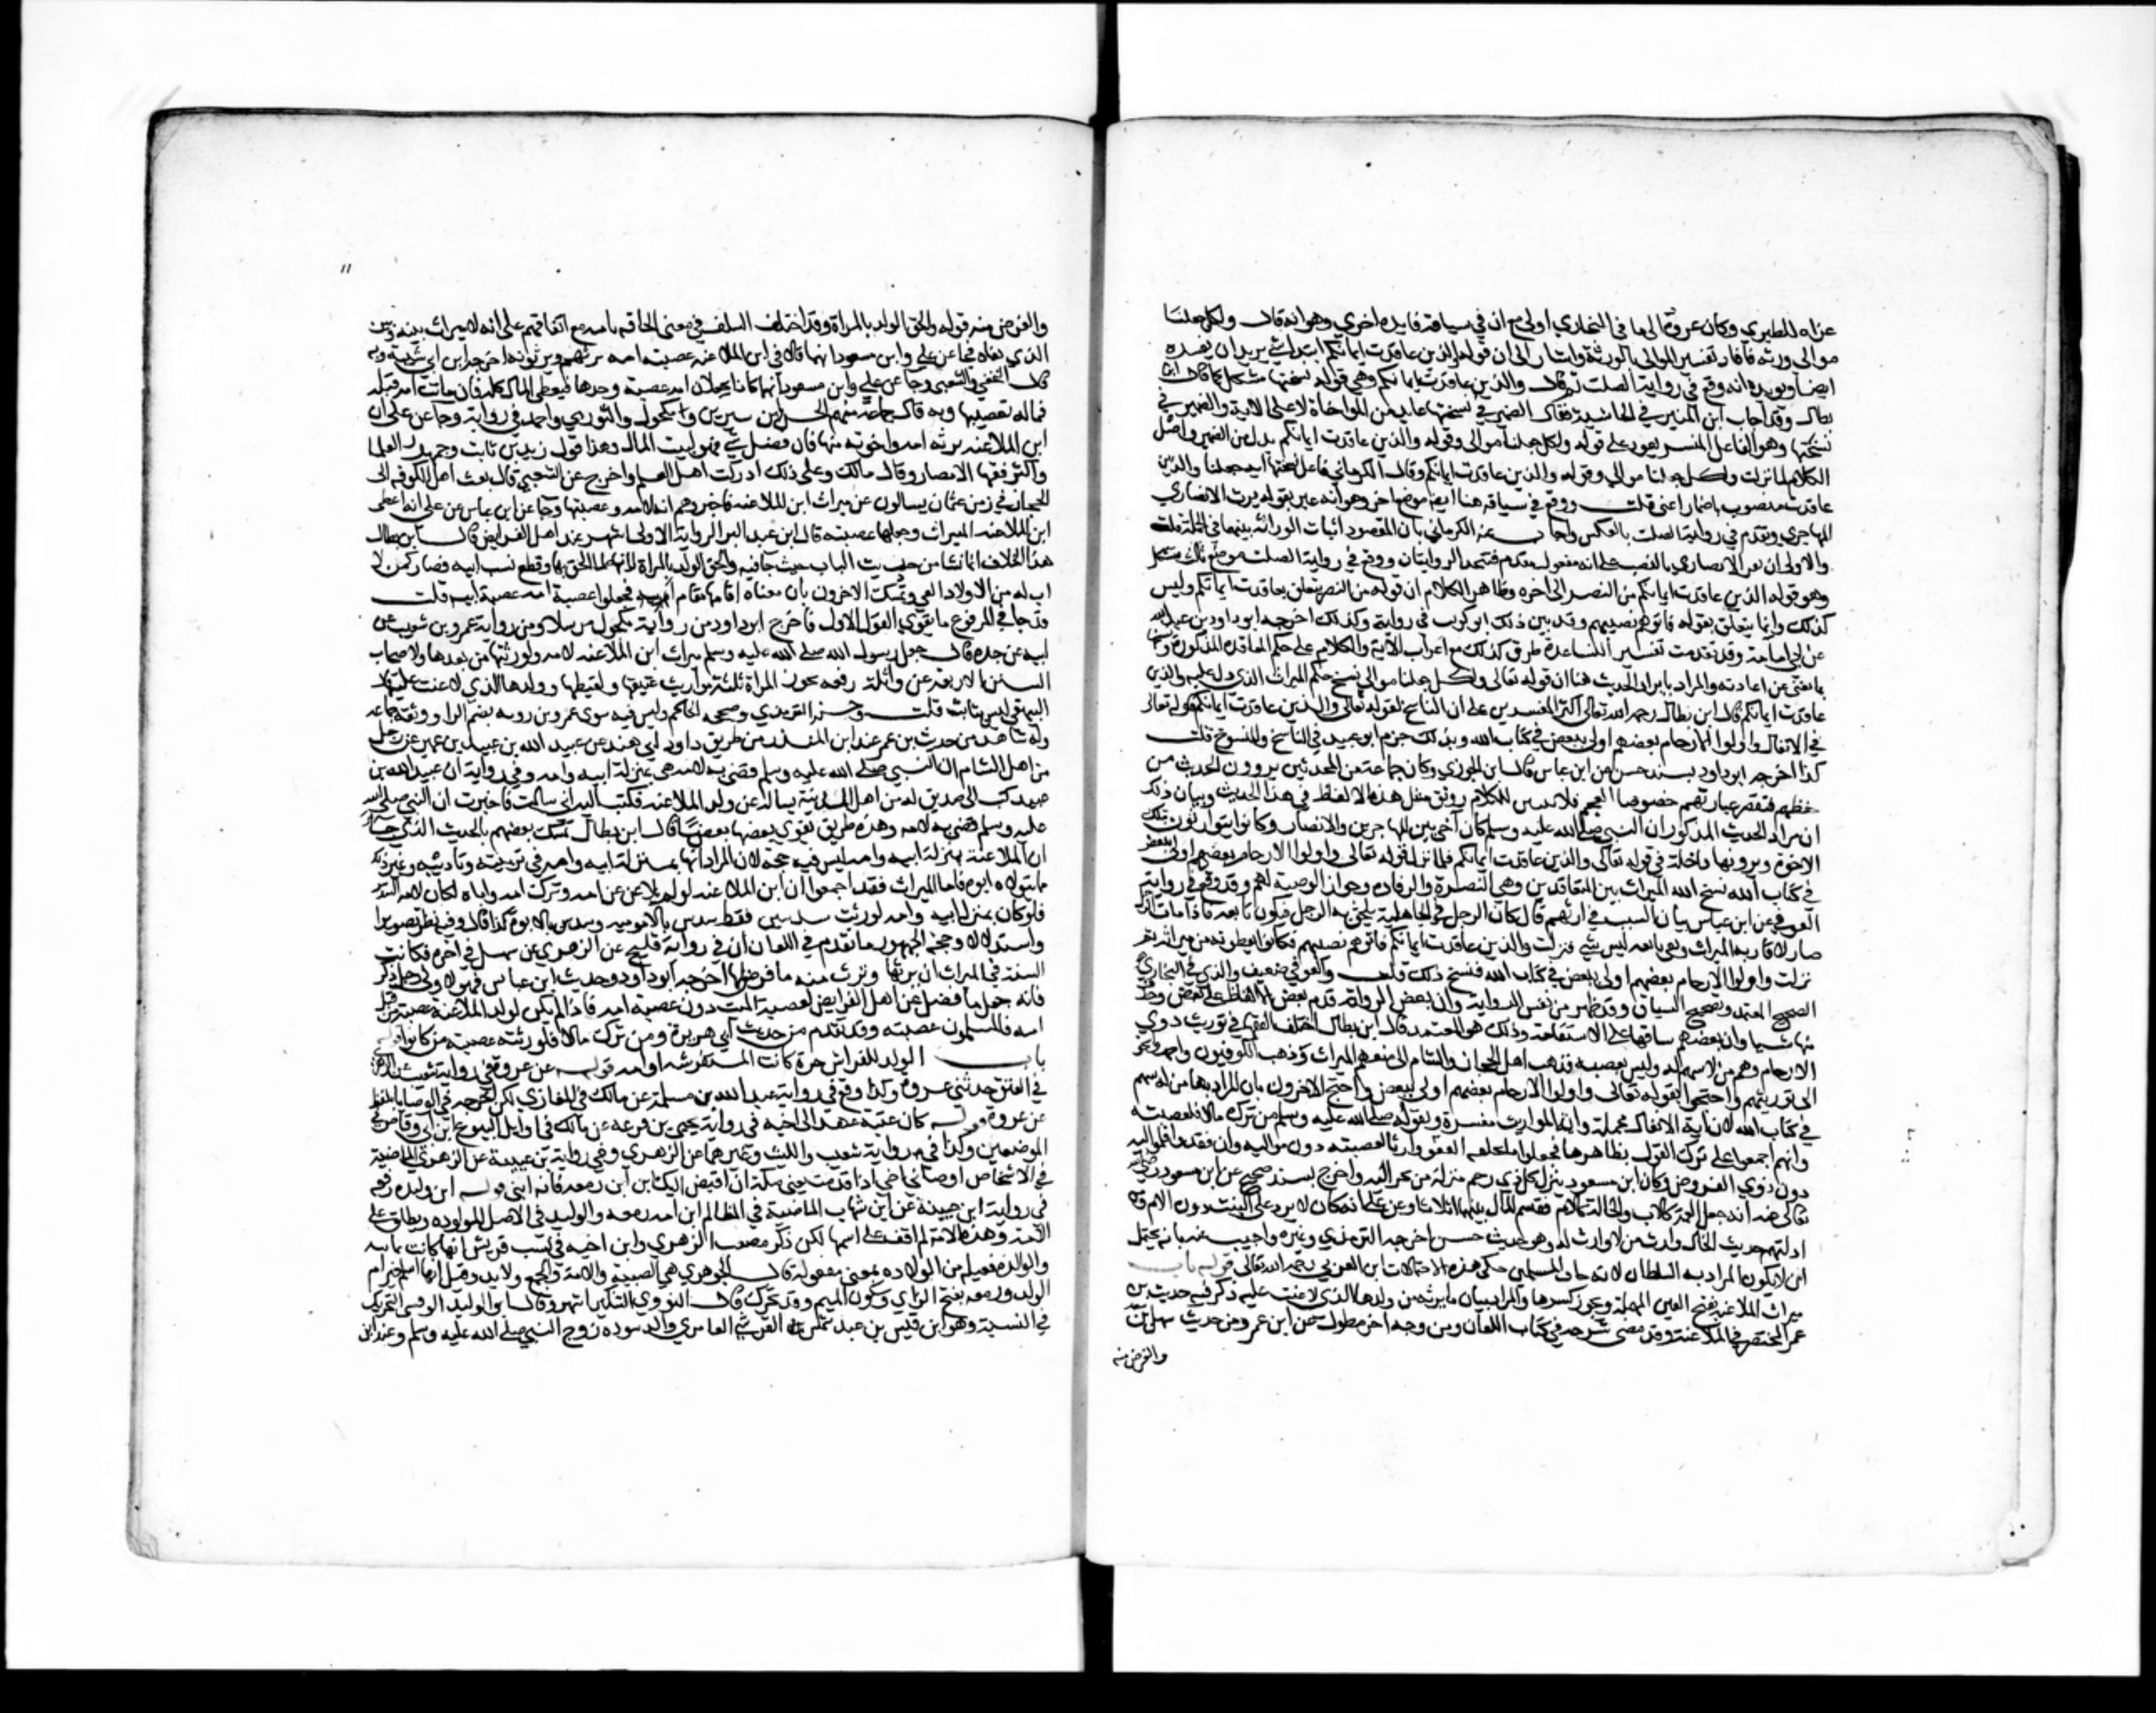 عزاه للطبري وكان عروة الى ما في البخاري اولى مع ان في سياقه فايدة اخرى وهو انه قال ولكل جعلنا
موالي ورثة فافاد تفسير الموالي بالورثة واشار الى ان قوله والذين عاقدت ايمانكم ابتداء شي يريد ان يفسره
ايضا ويويده انه وقع في رواية الصلت ثم قال والذين عاقدت ايمانكم وهي قوله نسختها مشكل كما قال ابن
بطال وقد اجاب ابن المنير في الحاشية فقال الضمير في نسختها عايد على المواخاة لا على الاية والضمير في
نسختها وهو الفاعل المستتر يعود على قوله ولكل جعلنا موالي وقوله والذين عاقدت ايمانكم بدل من الضمير واصل
الكلام لما نزلت ولكل جعلنا موالي وقوله والذين عاقدت ايمانكم وقال الكرماني فاعل نسختها اية جعلنا والذين
عاقدت منصوب باضمار اعني قلت ووقع في سياقه هنا ايضا موضع اخر وهو انه عبر بقوله يرث الانصاري
المهاجري وتقدم في رواية الصلت بالعكس واجاب عنه الكرماني بان المقصود اثبات الوراثة بينهما في الجملة قلت
والاولى ان يقرا الانصاري بالنصب على انه مفعول مقدم فتتحد الروايتان ووقع في رواية الصلت موضع ثالث مشكل
وهو قوله والذين عاقدت ايمانكم من النصر الى اخره وظاهر الكلام ان قوله من النصر يتعلق بعاقدت ايمانكم وليس
كذلك وانما يتعلق بقوله فاتوهم نصيبهم وقد بين ذلك ابو كريب في روايته وكذلك اخرجه ابو داود
عن ابي اسامة وقد تقدمت تفسير النساء عدة طرق كذلك مع اعراب الاية والكلام على حكم المعاقدة المذكورة
بما يغني عن اعادته والمراد بايراد الحديث هنا ان قوله تعالى ولكل جعلنا موالي نسخ حكم الميراث الذي دل عليه والذين
عاقدت ايمانكم قال ابن بطال رحمه الله تعالى اكثر المفسرين على ان الناسخ لقوله تعالى والذين عاقدت ايمانكم قوله تعالى
في الانفال واولوا الارحام بعضهم اولى ببعض في كتاب الله وبذلك جزم ابو عبيد في الناسخ والمنسوخ قلت
كذا اخرجه ابو داود بسند حسن عن ابن عباس قال ابن الجوزي وكان جماعة من المحدثين يروون الحديث من
حفظهم فتقصر عبارتهم خصوصا العجم فلا يتبين للكلام رونق مثل هذه الالفاظ في هذا الحديث وبيان ذلك
ان مراد الحديث المذكور ان النبي صلى الله عليه وسلم كان آخى بين المهاجرين والانصار وكانوا يتوارثون بتلك
الاخوة ويرونها داخلة في قوله تعالى والذين عاقدت ايمانكم فلما نزل قوله تعالى واولوا الارحام بعضهم اولى ببعض
في كتاب الله نسخ الله الميراث بين المتعاقدين وهي النصرة والرفادة وجواز الوصية لهم وقد وقع في رواية
العوفي عن ابن عباس بيان السبب في ارثهم قال كان الرجل في الجاهلية يلحق به الرجل فيكون تابعه فاذا مات الرجل
صار لاقاربه الميراث وبقي تابعه ليس له شي فنزلت والذين عاقدت ايمانكم فاتوهم نصيبهم فكانوا يعطونه من ميراثه ثم
نزلت واولوا الارحام بعضهم اولى ببعض في كتاب الله فنسخ ذلك قلت والعوفي ضعيف والذي في البخاري
الصحيح المعتمد وتصحيح السياق وقد ظهر من نفس الرواية وان بعض الرواة قدم بعض الالفاظ على بعض وحذف
منها شيا وان بعضهم ساقها على الاستقامة وذلك هو المعتمد قال ابن بطال اختلف الفقها في توريث ذوي
الارحام وهم من لا سهم له وليس بعصبة فذهب اهل الحجاز والشام الى منعهم الميراث وذهب الكوفيون واحمد واسحق
الى توريثهم واحتجوا بقوله تعالى واولوا الارحام بعضهم اولى ببعض واحتج الاخرون بان المراد بها من له سهم
في كتاب الله لان اية الانفال مجملة واية المواريث مفسرة وبقوله صلى الله عليه وسلم من ترك مالا فلعصبته
وانهم اجمعوا على ترك القول بظاهرها فجعلوا ما يخلفه المعتق ارثا لعصبته دون مواليه وان فقدوا فلمواليه
دون ذوي الفروض وكان ابن مسعود ينزل كل ذي رحم منزلة من يجر اليه واخرج بسند صحيح عن ابن مسعود رضي الله
تعالى عنه انه جعل العمة كالاب والخالة كالام فقسم المال بينهما اثلاثا وعن علي انه كان لا يرد على البنت دون الام
ادلتهم حديث الخال وارث من لا وارث له وهو حديث حسن اخرجه الترمذي وغيره واجيب عنه بانه يحتمل
ان يكون المراد به السلطان لانه خال المسلمين حكى هذه الاحتمالات ابن العربي رحمه الله تعالى قوله باب
ميراث الملاعنة بفتح العين المهملة ويجوز كسرها والمراد بيان ما يرثه من ولدها الذي لاعنت عليه ذكر فيه حديث بن
عمر المختصر في الملاعنة وقد مضى شرحه في كتاب اللعان ومن وجه اخر مطول عن ابن عمر ومن حديث سهل بن
والغرض منه
١١
والغرض منه قوله والحق الولد بالمراة وقد اختلف السلف في معنى الحاقه بامه مع اتفاقهم على انه لا ميراث بينه وبين
الذي نفاه فجا عن علي وابن مسعود انهما قالا في ابن الملاعنة عصبته امه يرثهم ويرثونه اخرجه ابن ابي شيبة وبه
قال النخعي والشعبي وجا عن علي وابن مسعود انهما كانا يجعلان امه عصبة وحدها فيعطى المال كله فان ماتت امه قبله
فماله لعصبتها وبه قال جماعة منهم الحسن وابن سيرين ومكحول والثوري واحمد في رواية وجا عن علي ان
ابن الملاعنة ترثه امه واخوته منها فان فضل شي فهو لبيت المال وهذا قول زيد بن ثابت وجمهور العلما
واكثر فقها الامصار وقال مالك وعلى ذلك ادركت اهل العلم واخرج عن الشعبي قال بعث اهل الكوفة الى
الحجاز في زمن عثمان يسالون عن ميراث ابن الملاعنة فاخبروهم انه لامه وعصبتها وجا عن ابن عباس عن علي انه اعطى
ابن الملاعنة الميراث وجعلها عصبته قال ابن عبد البر الرواية الاولى اشهر عند اهل الفرايض قال ابن بطال
هذا الخلاف انما نشا من حديث الباب حيث جا فيه والحق الولد بالمراة لانه لما الحق بها وقطع نسب ابيه فصار كمن لا
اب له من اولاد البغي وتمسك الاخرون بان معناه اقامها مقام ابيه فجعلوا عصبة امه عصبة ابيه قلت
وقد جا في المرفوع ما يقوي القول الاول فاخرج ابو داود من رواية مكحول مرسلا ومن رواية عمرو بن شعيب عن
ابيه عن جده قال جعل رسول الله صلى الله عليه وسلم ميراث ابن الملاعنة لامه ولورثتها من بعدها ولاصحاب
السنن الاربعة عن واثلة رفعه تحوز المراة ثلثة مواريث عتيقها ولقيطها وولدها الذي لاعنت عليه قال
البيهقي ليس بثابت قلت وحسنه الترمذي وصححه الحاكم وليس فيه سوى عمرو بن روبة بضم الرا ووثقه جماعة
وله شاهد من حديث بن عمر عند ابن المنذر من طريق داود بن ابي هند عن عبيد الله بن عبيد بن عمير عن رجل
من اهل الشام ان النبي صلى الله عليه وسلم قضى به لامه هي بمنزلة ابيه وامه وفي رواية ان عبيد الله بن
عبيد كتب الى صديق له من اهل المدينة يساله عن ولد الملاعنة فكتب اليه اني سالت فاخبرت ان النبي صلى الله
عليه وسلم قضى به لامه وهذه طريق يقوي بعضها بعضا قال ابن بطال تمسك بعضهم بالحديث الذي جا
ان الملاعنة بمنزلة ابيه وامه وليس فيه حجة لان المراد انها بمنزلة ابيه وامه في تربيته وتاديبه وغير ذلك
مما يتولاه ابوه فاما الميراث فقد اجمعوا ان ابن الملاعنة لو لم يلاعن عن امه وترك امه واباه لكان لامه السدس
فلو كان بمنزلة ابيه وامه لورثت سدسين فقط سدس بالامومة وسدس بالابوة كذا قال وفيه نظر تصويرا
واستدلالا وحجة الجمهور ما تقدم في اللعان ان في رواية فليح عن الزهري عن سهل في اخره فكانت
السنة في الميراث ان يرثها وترث منه ما فرض لها اخرجه ابو داود وحديث ابن عباس فهو لاولى رجل ذكر
فانه جعل ما فضل عن اهل الفرايض لعصبة الميت دون عصبة امه فاذا لم يكن لولد الملاعنة عصبة من قبل
ابيه فالمسلمون عصبته وقد تقدم من حديث ابي هريرة ومن ترك مالا فلورثته عصبته من كانوا قوله
باب الولد للفراش حرة كانت المستفرشة او امة قوله عن عروة في رواية شعيب
في العتق حدثني عروة وكذا وقع في رواية عبد الله بن مسلمة عن مالك في المغازي لكن اخرجه في الوصايا بلفظ
عن عروة قوله كان عتبة عهد الى اخيه في رواية يحيى بن قزعة عن مالك في اوايل البيوع ابن ابي وقاص في
الموضعين وكذا في رواية شعيب والليث وغيرهما عن الزهري وفي رواية بن عيينة عن الزهري الماضية
في الاشخاص اوصاني اخي اذا قدمت يعني مكة ان اقبض اليك ابن امة زمعة فانه ابني قوله ابن وليدة زمعة
في رواية ابن عيينة عن ابن شهاب الماضية في المظالم ابن امة زمعة والوليدة في الاصل المولودة ويطلق على
الامة وهذه الامة لم اقف على اسمها لكن ذكر مصعب الزهري وابن اخيه في نسب قريش انها كانت يمانية
والوليدة فعيلة من الولادة بمعنى مفعولة قال الجوهري هي الصبية والامة والجمع ولايد وقيل انها اسم لغير ام
الولد وزمعة بفتح الزاي وسكون الميم وقد تحرك قال النووي التسكين اشهر وقال ابو الوليد الوقشي التحريك
في النسبة وهو ابن قيس بن عبد شمس القرشي العامري والد سودة زوج النبي صلى الله عليه وسلم وعبد ابن